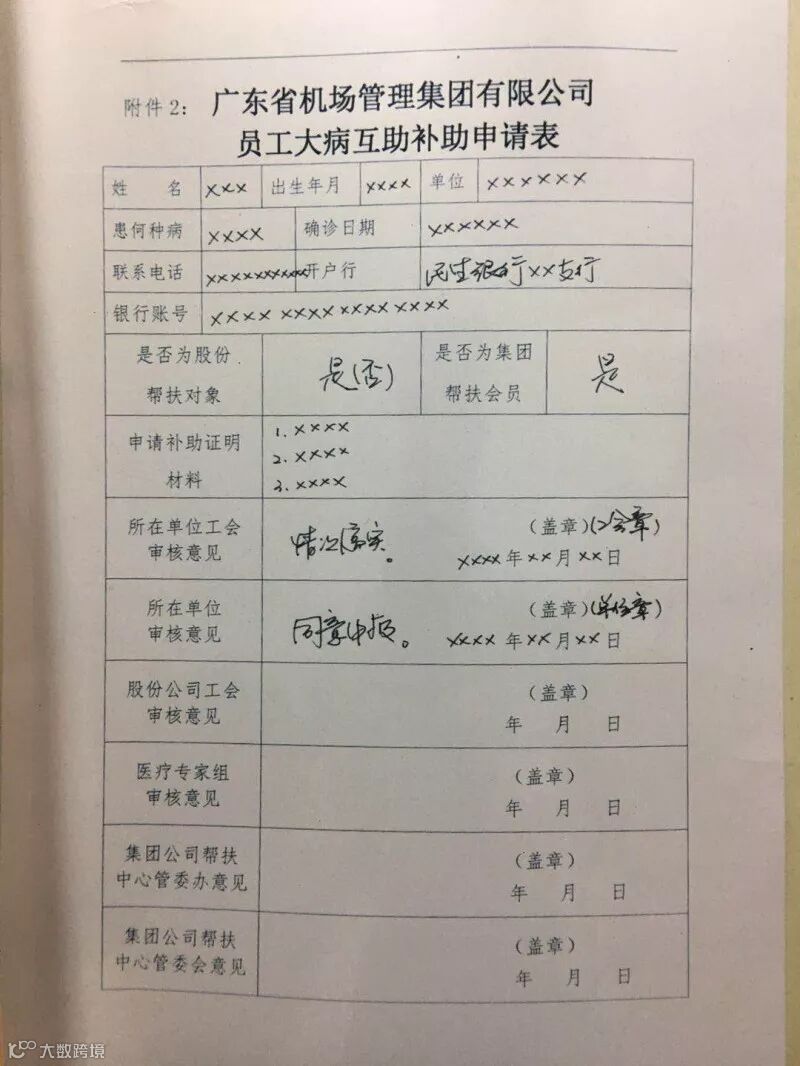 附件2：广东省机场管理集团有限公司
员工大病互助补助申请表
姓 名 xxx 出生年月 xxxx 单位 xxxxxx
患何种病 xxxx 确诊日期 xxxxxx
联系电话 xxxxxxxxxx 开户行 民生银行xx支行
银行账号 xxxx xxxx xxxx xxxx
是否为股份 是(否) 是否为集团 是
帮扶对象 帮扶会员
申请补助证明 1. xxxx
2. xxxx
材料 3. xxxx
所在单位工会 情况属实。 （盖章）(工会章)
审核意见 xxxx年xx月xx日
所在单位 同意申报。 （盖章）(单位章)
审核意见 xxxx年xx月xx日
股份公司工会 （盖章）
审核意见 年 月 日
医疗专家组 （盖章）
审核意见 年 月 日
集团公司帮扶 （盖章）
中心管委办意见 年 月 日
集团公司帮扶 （盖章）
中心管委会意见 年 月 日
大数跨境